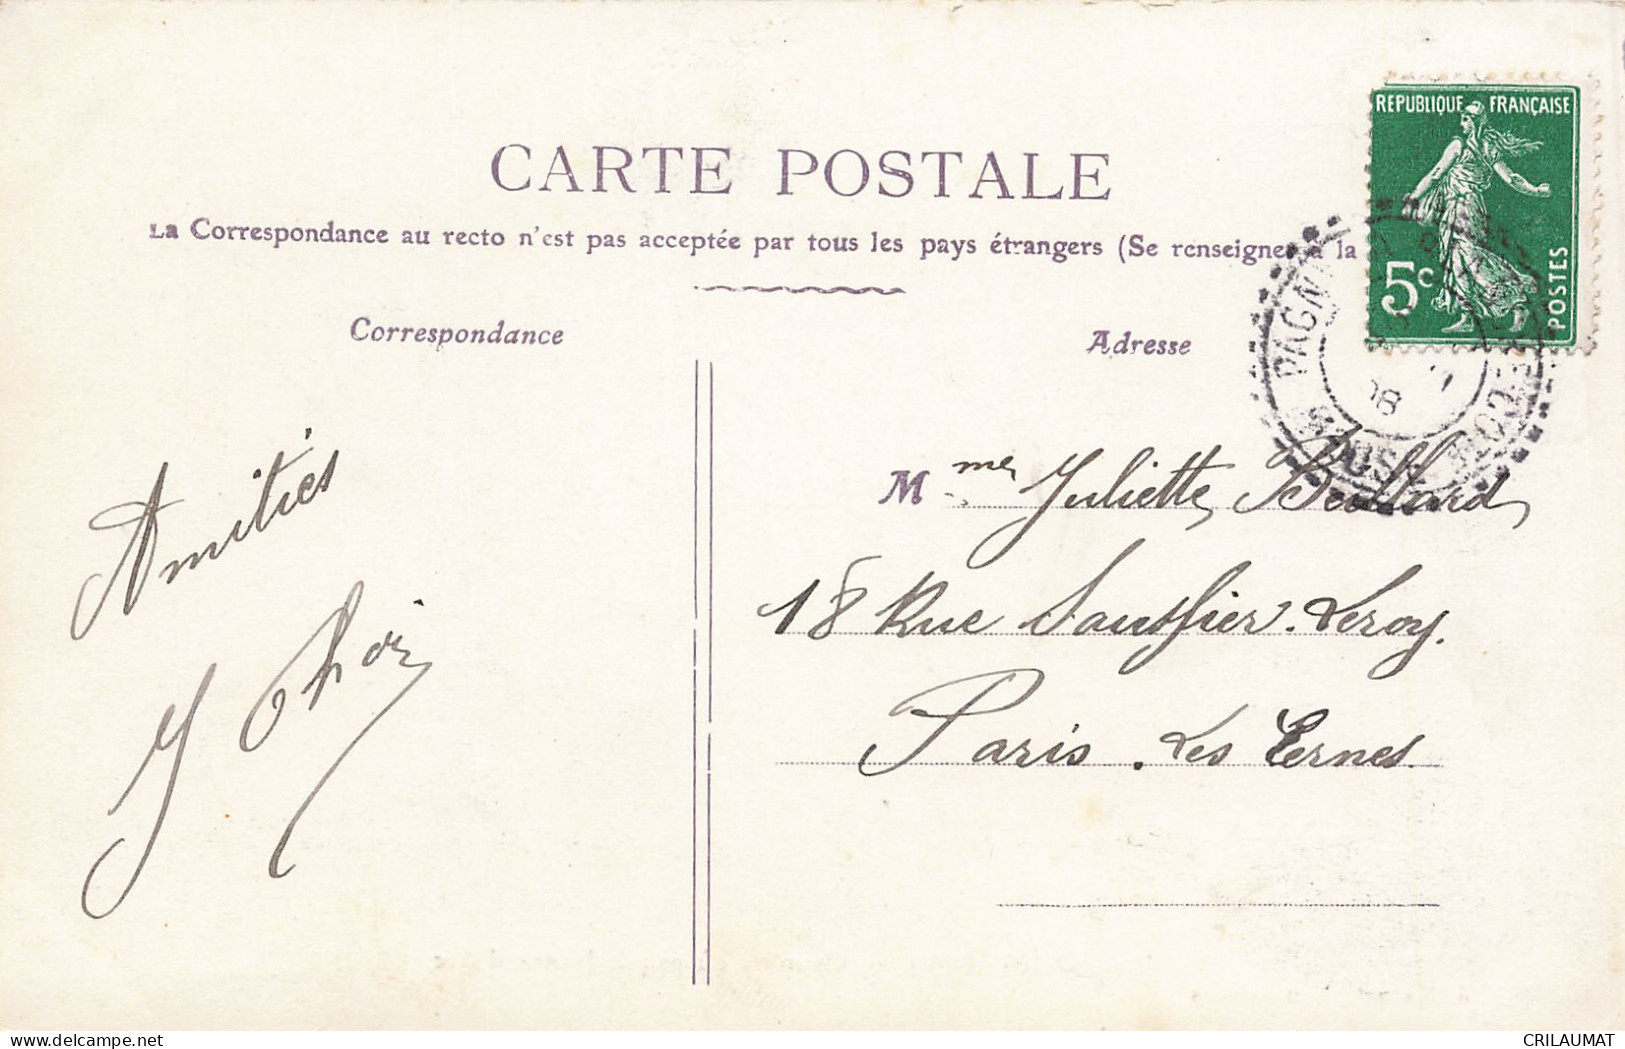 REPUBLIQUE FRANÇAISE
5c
POSTES
CARTE POSTALE
La Correspondance au recto n'est pas acceptée par tous les pays étrangers (Se renseigner à la
Correspondance
Adresse
PAGNY
08
Amitiés
Mme Juliette
18 Rue Sauffier. Leroy.
Paris. Les Ternes
CRILAUMAT